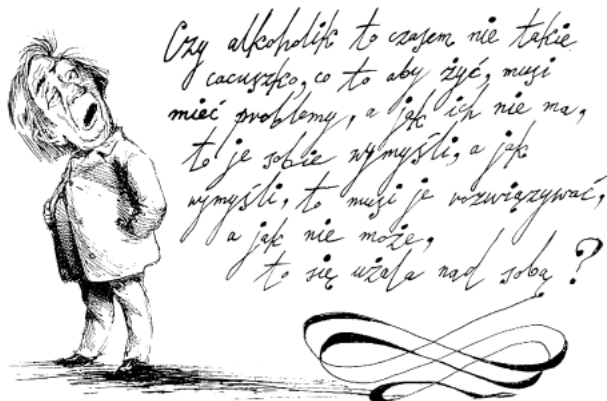 Czy alkoholik to czasem nie takie
cacuszko, co to aby żyć, musi
mieć problemy, a jak ich nie ma,
to je sobie wymyśli, a jak
wymyśli, to musi je rozwiązywać,
a jak nie może,
to się użala nad sobą?